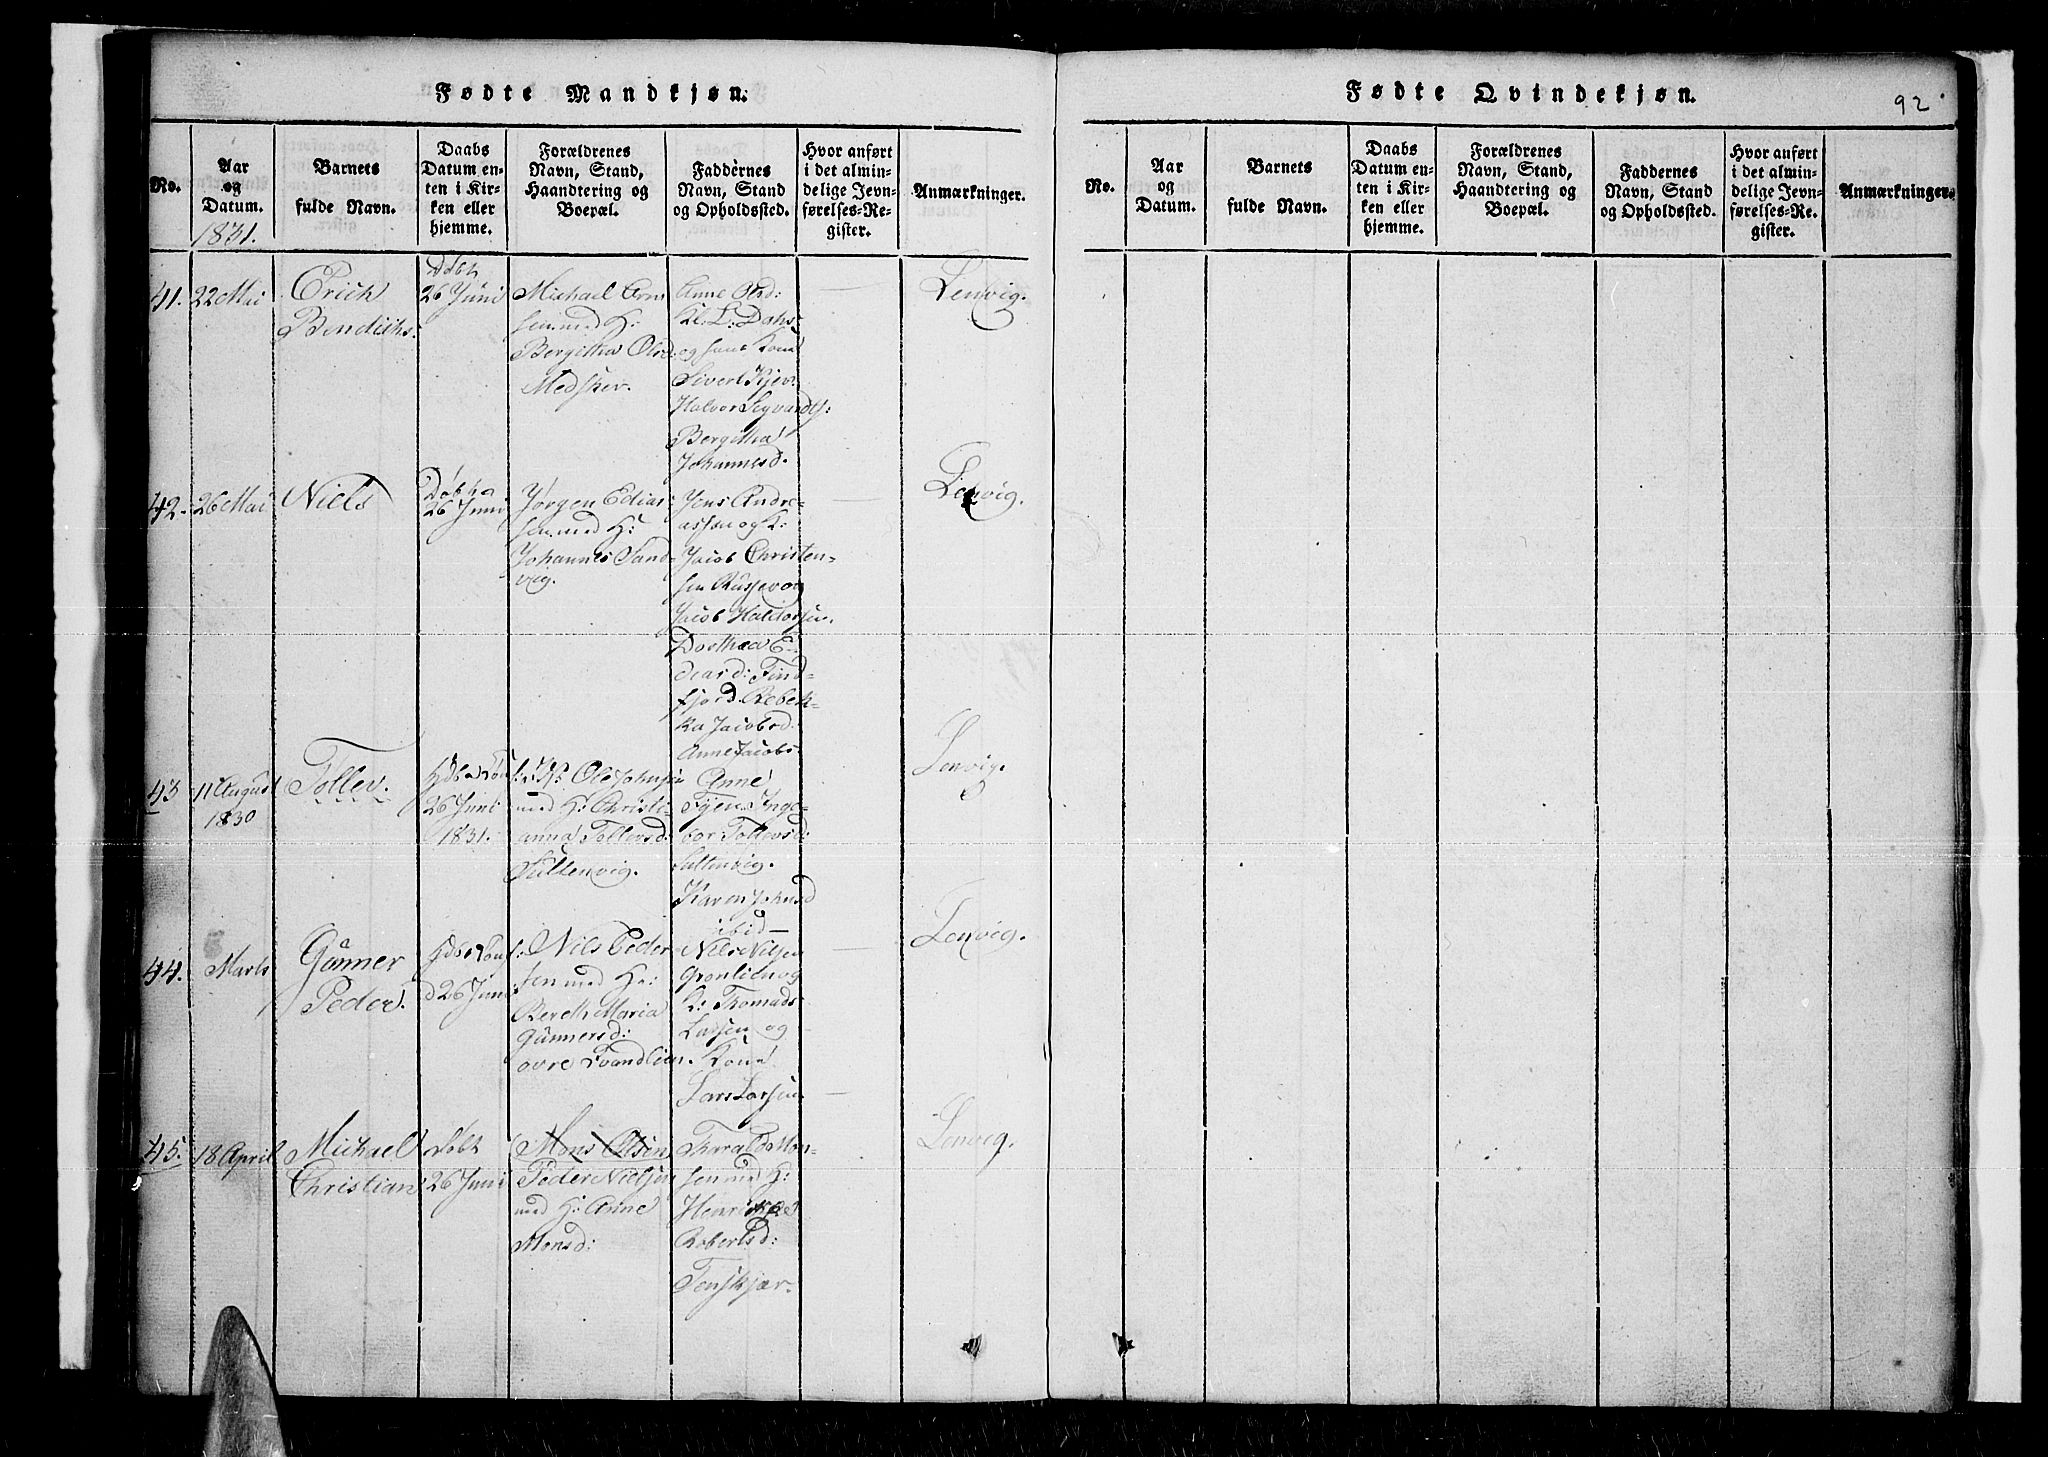 Fødte Mandkjøn.
No.
Aar
og
Datum.
1831.
Barnets
fulde Navn.
Daabs
Datum en-
ten i Kir-
ken eller
hjemme.
Forældrenes
Navn, Stand,
Haandtering og
Boepæl.
Faddernes
Navn, Stand
og Opholdssted.
Hvor anført
i det almin-
delige Jevn-
førelses-Re-
gister.
Anmærkninger.
41.
22 Mai
Erich
Bendichs:
Døbt
26 Juni
Michael Arns
sen med H:
Bergitha Olsd:
Medsher.
Anne Olsd:
Kl: L: Dahs
og hans Kone
Sivert Kjev
Halvor Sigvardts:
Bergitha
Johannesd.
Lenvig.
42.
26 Mai
Niels
26 Juni
Jørgen Edias
sen med H:
Johannes Sand
vig.
Jens Andre-
assen og K:
Jacob Christen-
sen Russevog
Jacob Haldorsen.
Dorthea E-
diasd: Find-
fjord. Rebek-
ka Jacobsd:
Anne Jacobs.
Lenvig.
43
11 August
1830
Tollev.
26 Juni
1831.
Ole Johnsen
med H: Christi-
anna Tollevsd:
Sultenvig.
Anne
Tjen. Inge-
bor Tollevsd:
Sultenvig.
Karen Johnsd
ibid
Lenvig.
44.
Marts
Gunner
Peder.
d 26 Juni
Nils Peder
sen med H:
Bereth Maria
Gunnersd:
øvre Svandlien.
Nils Nilsen
Grønlien og
K: Thomads
Larsen og
Kone
Lars Larsen
Lenvig.
45.
18 April
Michael
Christian
Døbt
26 Juni
Mons Olsen
Peder Nielsen
med H: Anne
Monsd:
Tharald Mon-
sen med H:
Henrikke
Robertsd:
Tenskjær.
Lenvig.
Fødte Qvindekjøn.
92
No.
Aar
og
Datum.
Barnets
fulde Navn.
Daabs
Datum en-
ten i Kir-
ken eller
hjemme.
Forældrenes
Navn, Stand,
Haandtering og
Boepæl.
Faddernes
Navn, Stand
og Opholdssted.
Hvor anført
i det almin-
delige Jevn-
førelses-Re-
gister.
Anmærkninger.